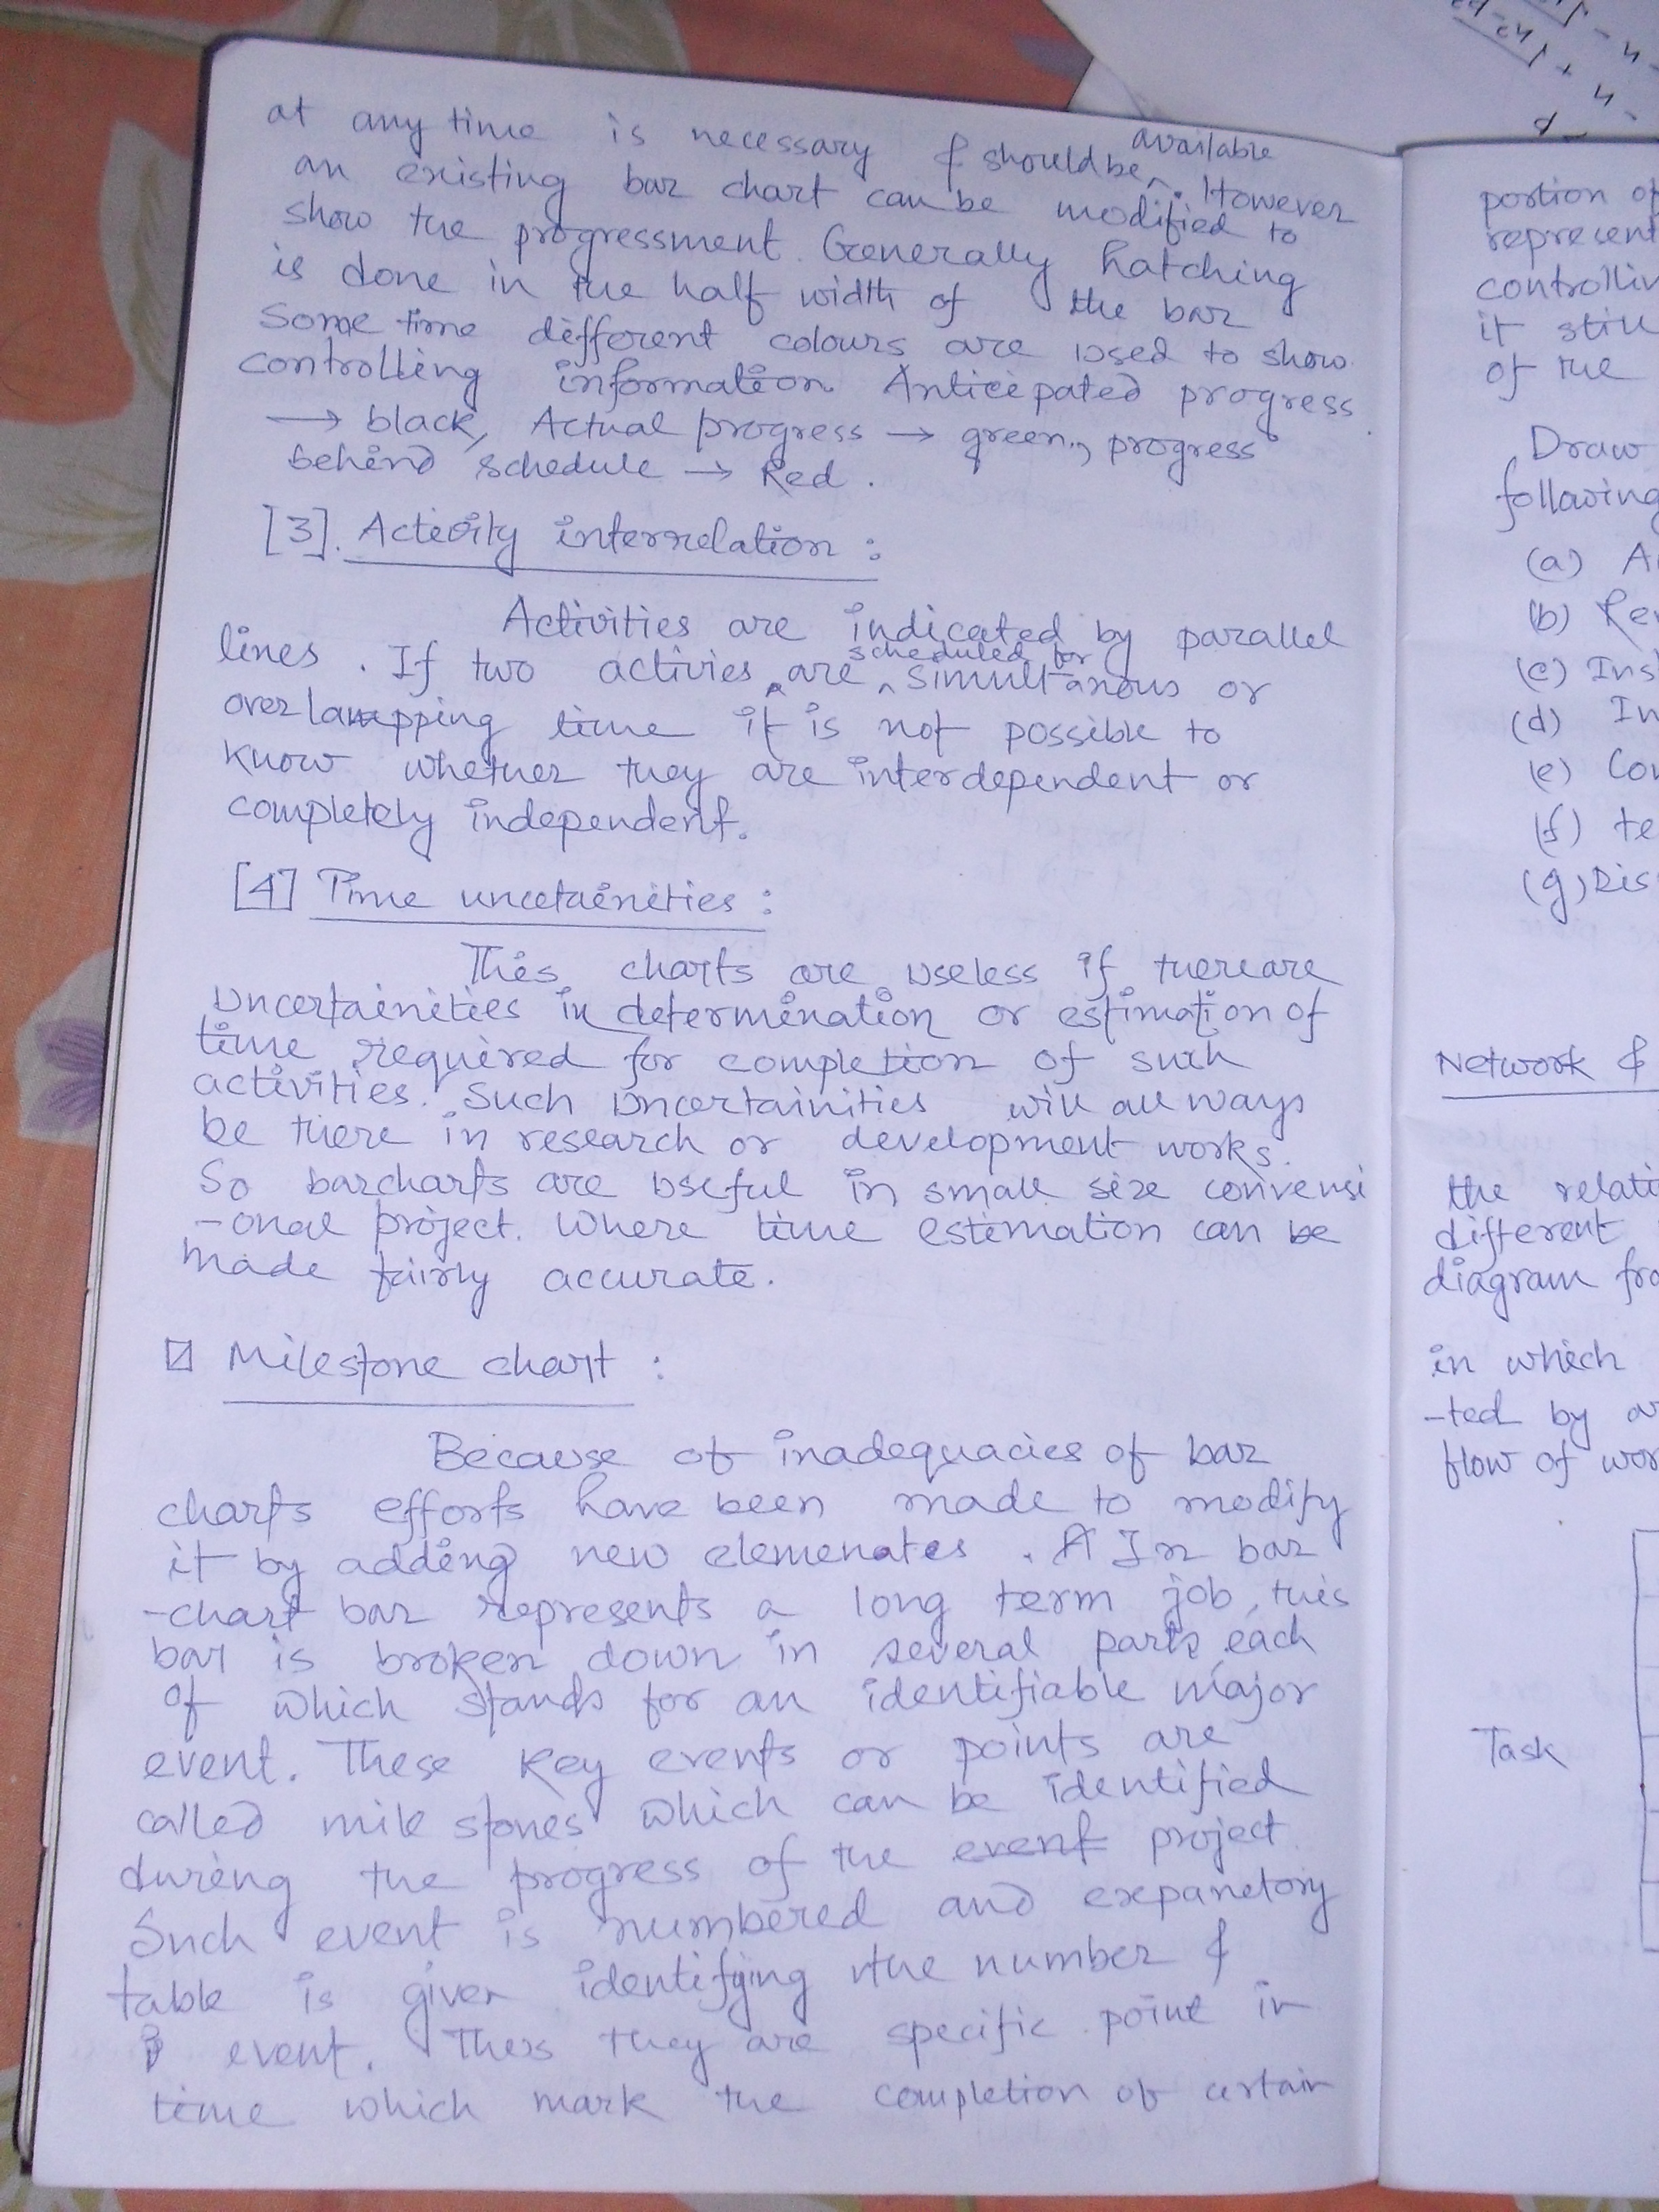 at any time is necessary & should be available. However
an existing bar chart can be modified to
show the progressment. Generally hatching
is done in the half width of the bar
Some time different colours are used to show
controlling information Anticipated progress
→ black, Actual progress → green, progress
behind schedule → Red.
[3]. Activity interrelation :
Activities are indicated by parallel
lines. If two activies are scheduled for simultanous or
overlapping time it is not possible to
know whether they are interdependent or
completely independent.
[4] Time uncetainities :
This charts are useless if there are
uncertainities in determination or estimation of
time required for completion of such
activities. Such uncertainities will allways
be there in research or development works.
So barcharts are useful in small size convensi
-onal project. Where time estimation can be
made fairly accurate.
Milestone chart :
Because of inadequacies of bar
charts efforts have been made to modify
it by adding new elemenates. A In bar
-chart bar represents a long term job, this
bar is broken down in several parts each
of which stands for an identifiable major
event. These key events or points are
called mile stones which can be identified
during the progress of the event project.
Such event is numbered and expanetory
table is given identifying the number &
event. Thus they are specific point in
time which mark the completion of certain
portion of
represent
it still
of the
Draw
following
(a)
(b)
(c)
(d)
(e)
(f)
(g)
Network &
the
different
diagram
in which
-ted by
flow of
Task